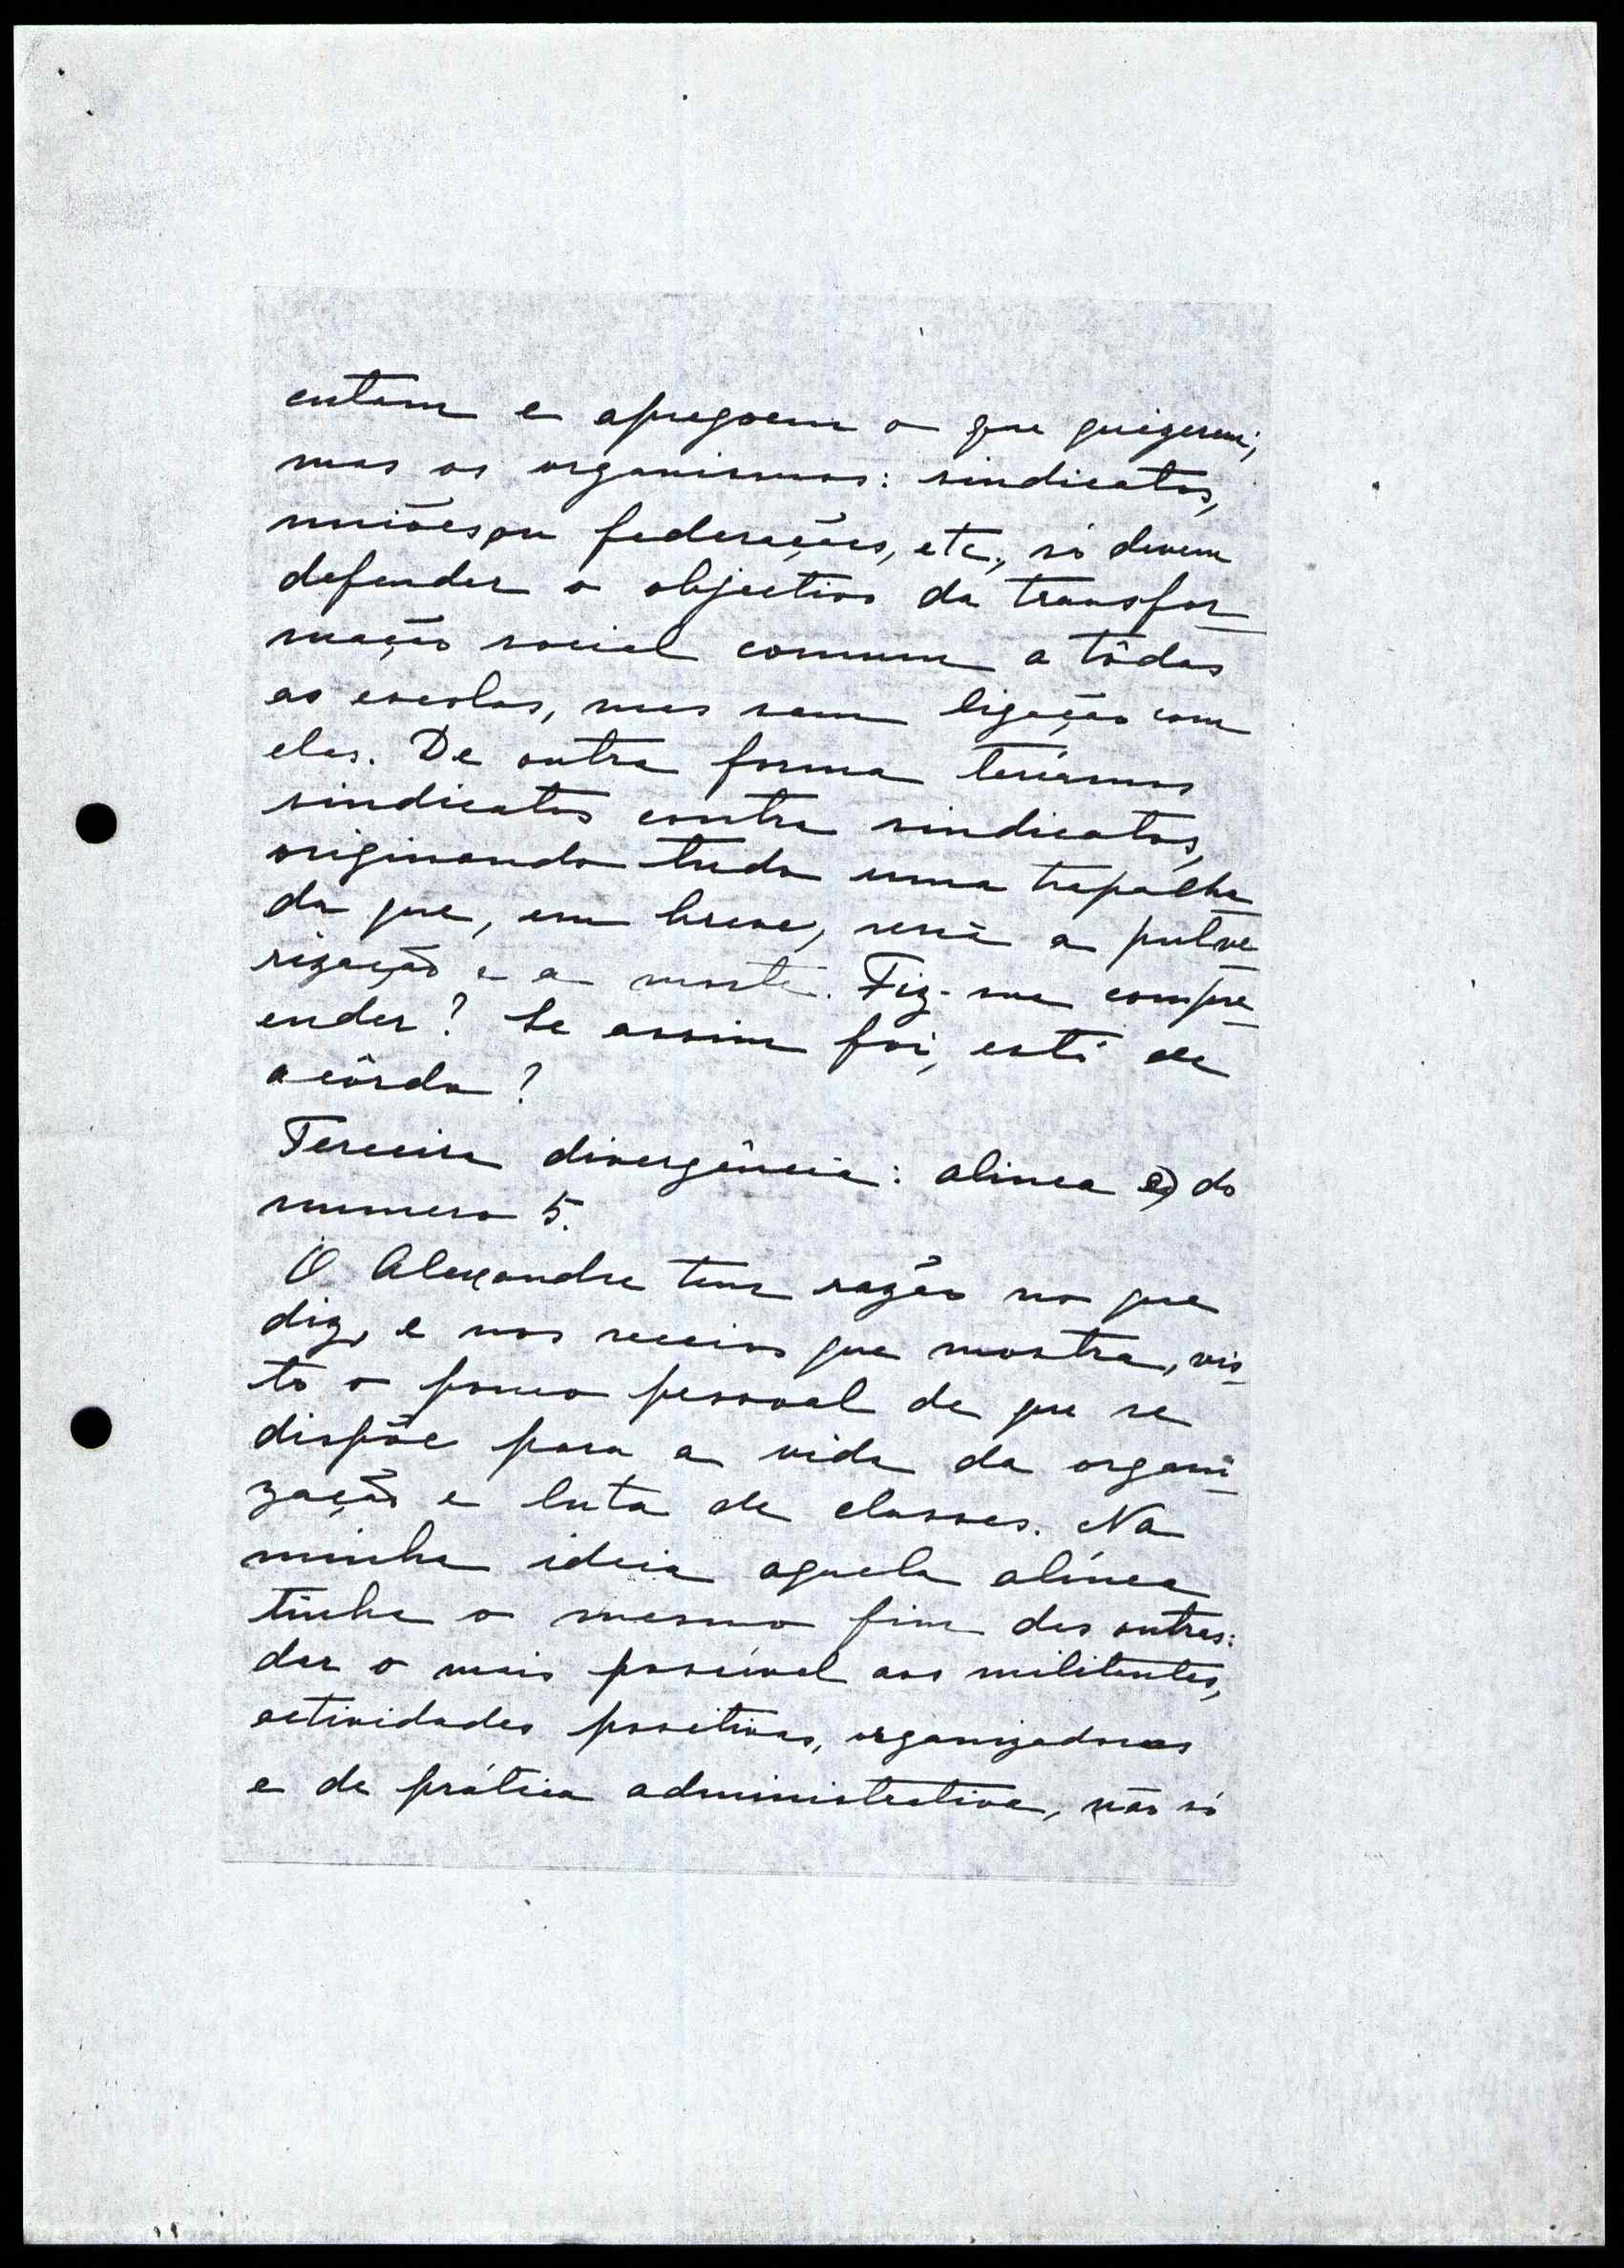 cutam e apregoem o que quizerem;
mas os organismos: sindicatos,
uniões ou federações, etc., só devem
defender o objectivo da transfor-
mação social comum a tôdas
as escolas, mas sem ligação com
elas. De outra forma teríamos
sindicatos contra sindicatos,
originando tudo uma trapalha-
da que, em breve, seria a pulve-
rização e a morte. Fiz-me compre-
ender? Se assim foi, está de
acôrdo?
Terceira divergência: alinea e) do
numero 5.
O Alexandre tem razão no que
diz, e nos receios que mostra, vis-
to o pouco pessoal de que se
dispõe para a vida da organi-
zação e luta de classes. Na
minha ideia aquela alínea
tinha o mesmo fim das outras:
dar o mais possível aos militantes,
actividades positivas, organizadoras
e de prática administrativa, não só